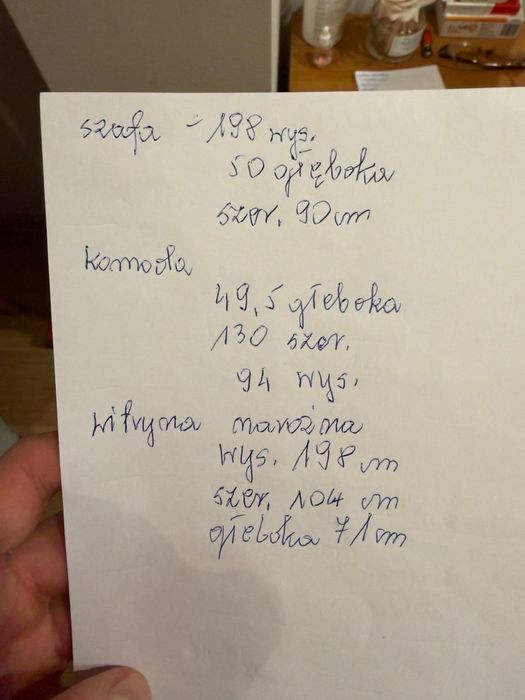 szafa - 198 wys.
50 głęboka
szer. 90cm
komoda
49,5 głeboka
130 szer.
94 wys.
witryna narożna
wys. 198 cm
szer. 104 cm
głeboka 71cm